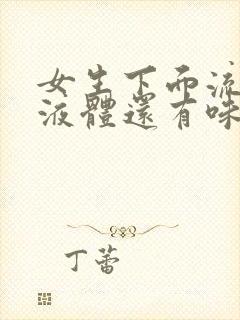 女生下面流
液體還有味
丁蕾